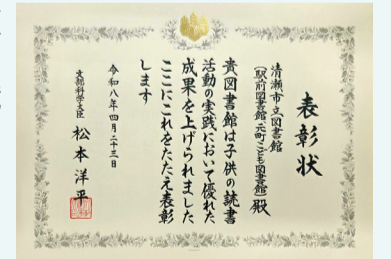 表彰状
清瀬市立図書館
(駅前図書館・元町こども図書館)殿
貴図書館は子供の読書
活動の実践において優れた
成果を上げられました
ここにこれをたたえ表彰
します
令和八年四月二十三日
文部科学大臣 松本洋平